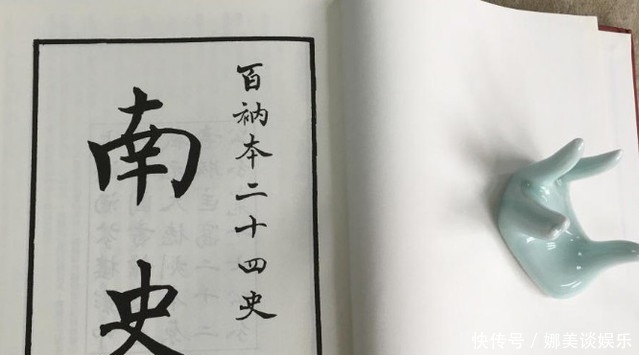 百衲本二十四史
南史
快传号／娜美谈娱乐